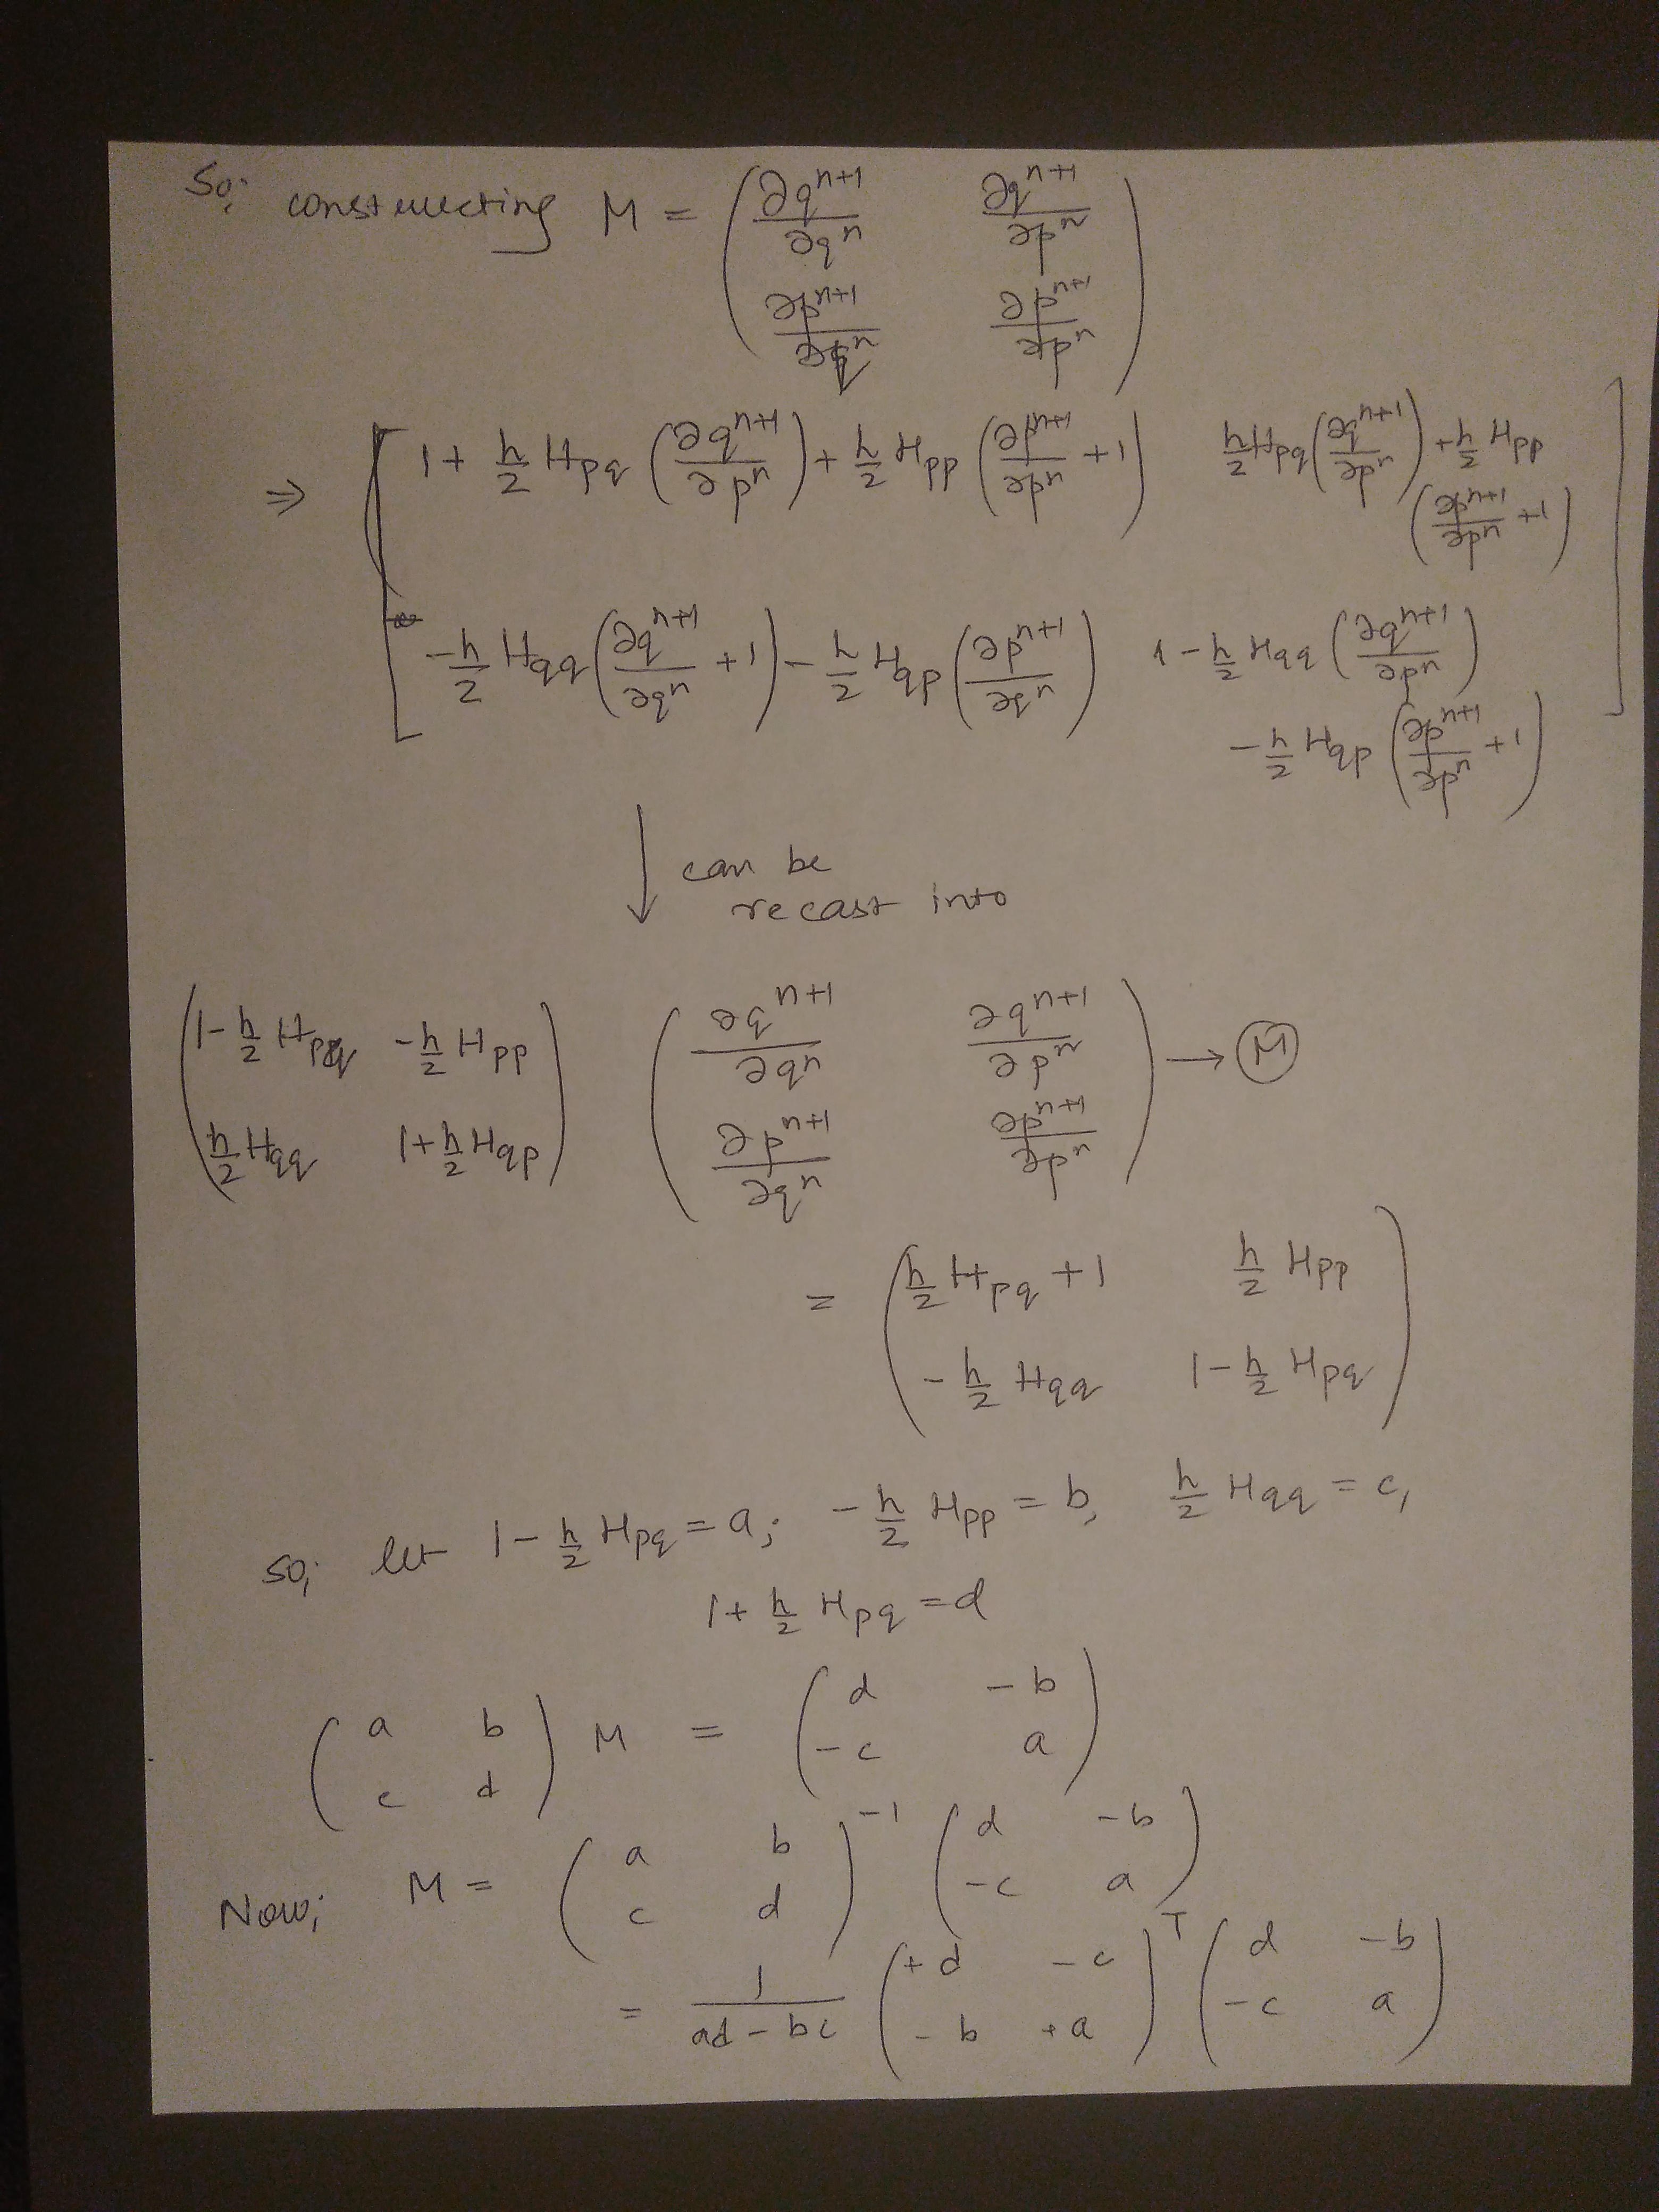 So; constructing M = ( ∂q^{n+1}/∂q^n   ∂q^{n+1}/∂p^n
∂p^{n+1}/∂q^n   ∂p^{n+1}/∂p^n )
⇒ [ 1 + h/2 H_{pq} (∂q^{n+1}/∂p^n) + h/2 H_{pp} (∂p^{n+1}/∂p^n + 1)   h/2 H_{pq} (∂q^{n+1}/∂p^n) + h/2 H_{pp}
(∂p^{n+1}/∂p^n + 1)
- h/2 H_{qq} (∂q^{n+1}/∂q^n + 1) - h/2 H_{qp} (∂p^{n+1}/∂q^n)   1 - h/2 H_{qq} (∂q^{n+1}/∂p^n)
- h/2 H_{qp} (∂p^{n+1}/∂p^n + 1) ]
↓ can be
recast into
( 1 - h/2 H_{pq}   - h/2 H_{pp} ) ( ∂q^{n+1}/∂q^n   ∂q^{n+1}/∂p^n ) → M
( h/2 H_{qq}   1 + h/2 H_{qp} ) ( ∂p^{n+1}/∂q^n   ∂p^{n+1}/∂p^n )
= ( h/2 H_{pq} + 1   h/2 H_{pp}
- h/2 H_{qq}   1 - h/2 H_{pq} )
so; let 1 - h/2 H_{pq} = a; - h/2 H_{pp} = b, h/2 H_{qq} = c,
1 + h/2 H_{pq} = d
( a b ) M = ( d -b )
( c d ) ( -c a )
Now; M = ( a b ; c d )^{-1} ( d -b ; -c a )
= 1/(ad - bc) ( +d -c ; -b +a )^T ( d -b ; -c a )